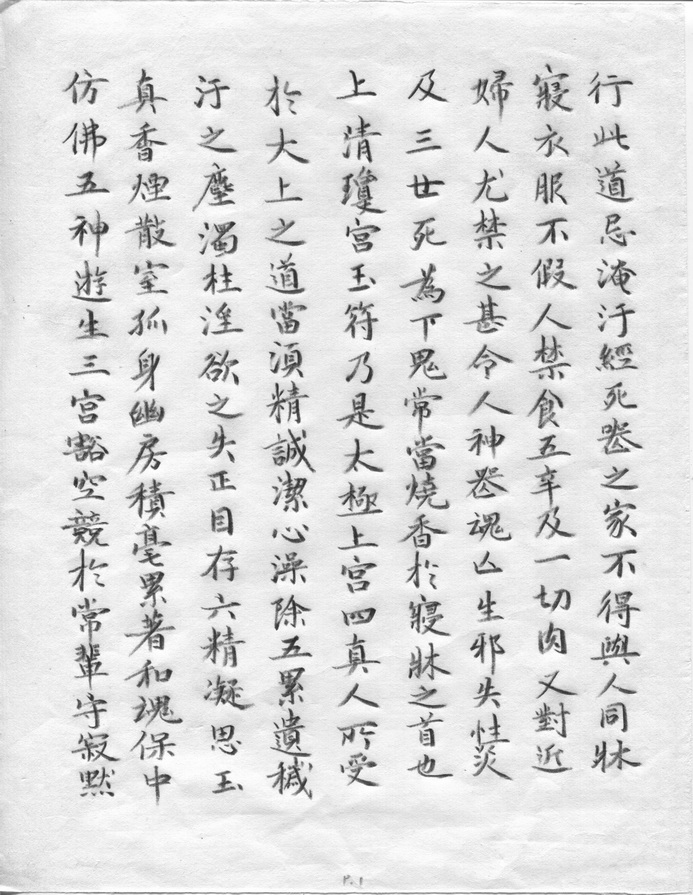 行此道忌淹汙經死喪之家不得與人同牀
寢衣服不假人禁食五辛及一切肉又對近
婦人尤禁之甚令人神喪魂亡生邪失性災
及三世死為下鬼常當燒香於寢牀之首也
上清瓊宮玉符乃是太極上宮四真人所受
於太上之道當須精誠潔心澡除五累遺穢
汙之塵濁杜淫欲之失正目存六精凝思玉
真香煙散室孤身幽房積毫累著和魂保中
仿佛五神遊生三宮豁空競於常輩守寂默
P.1